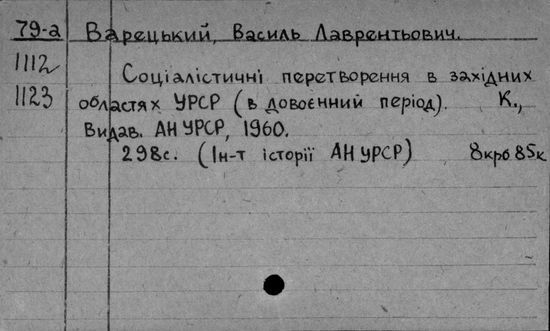 79-а Варецький, Василь Лаврентьович.
1112
Соціалістичні перетворення в західних
1123 областях УРСР (в довоєнний період). К.,
Видав. АН УРСР, 1960.
298с. (Ін-т історії АН УРСР) 8крб 85к